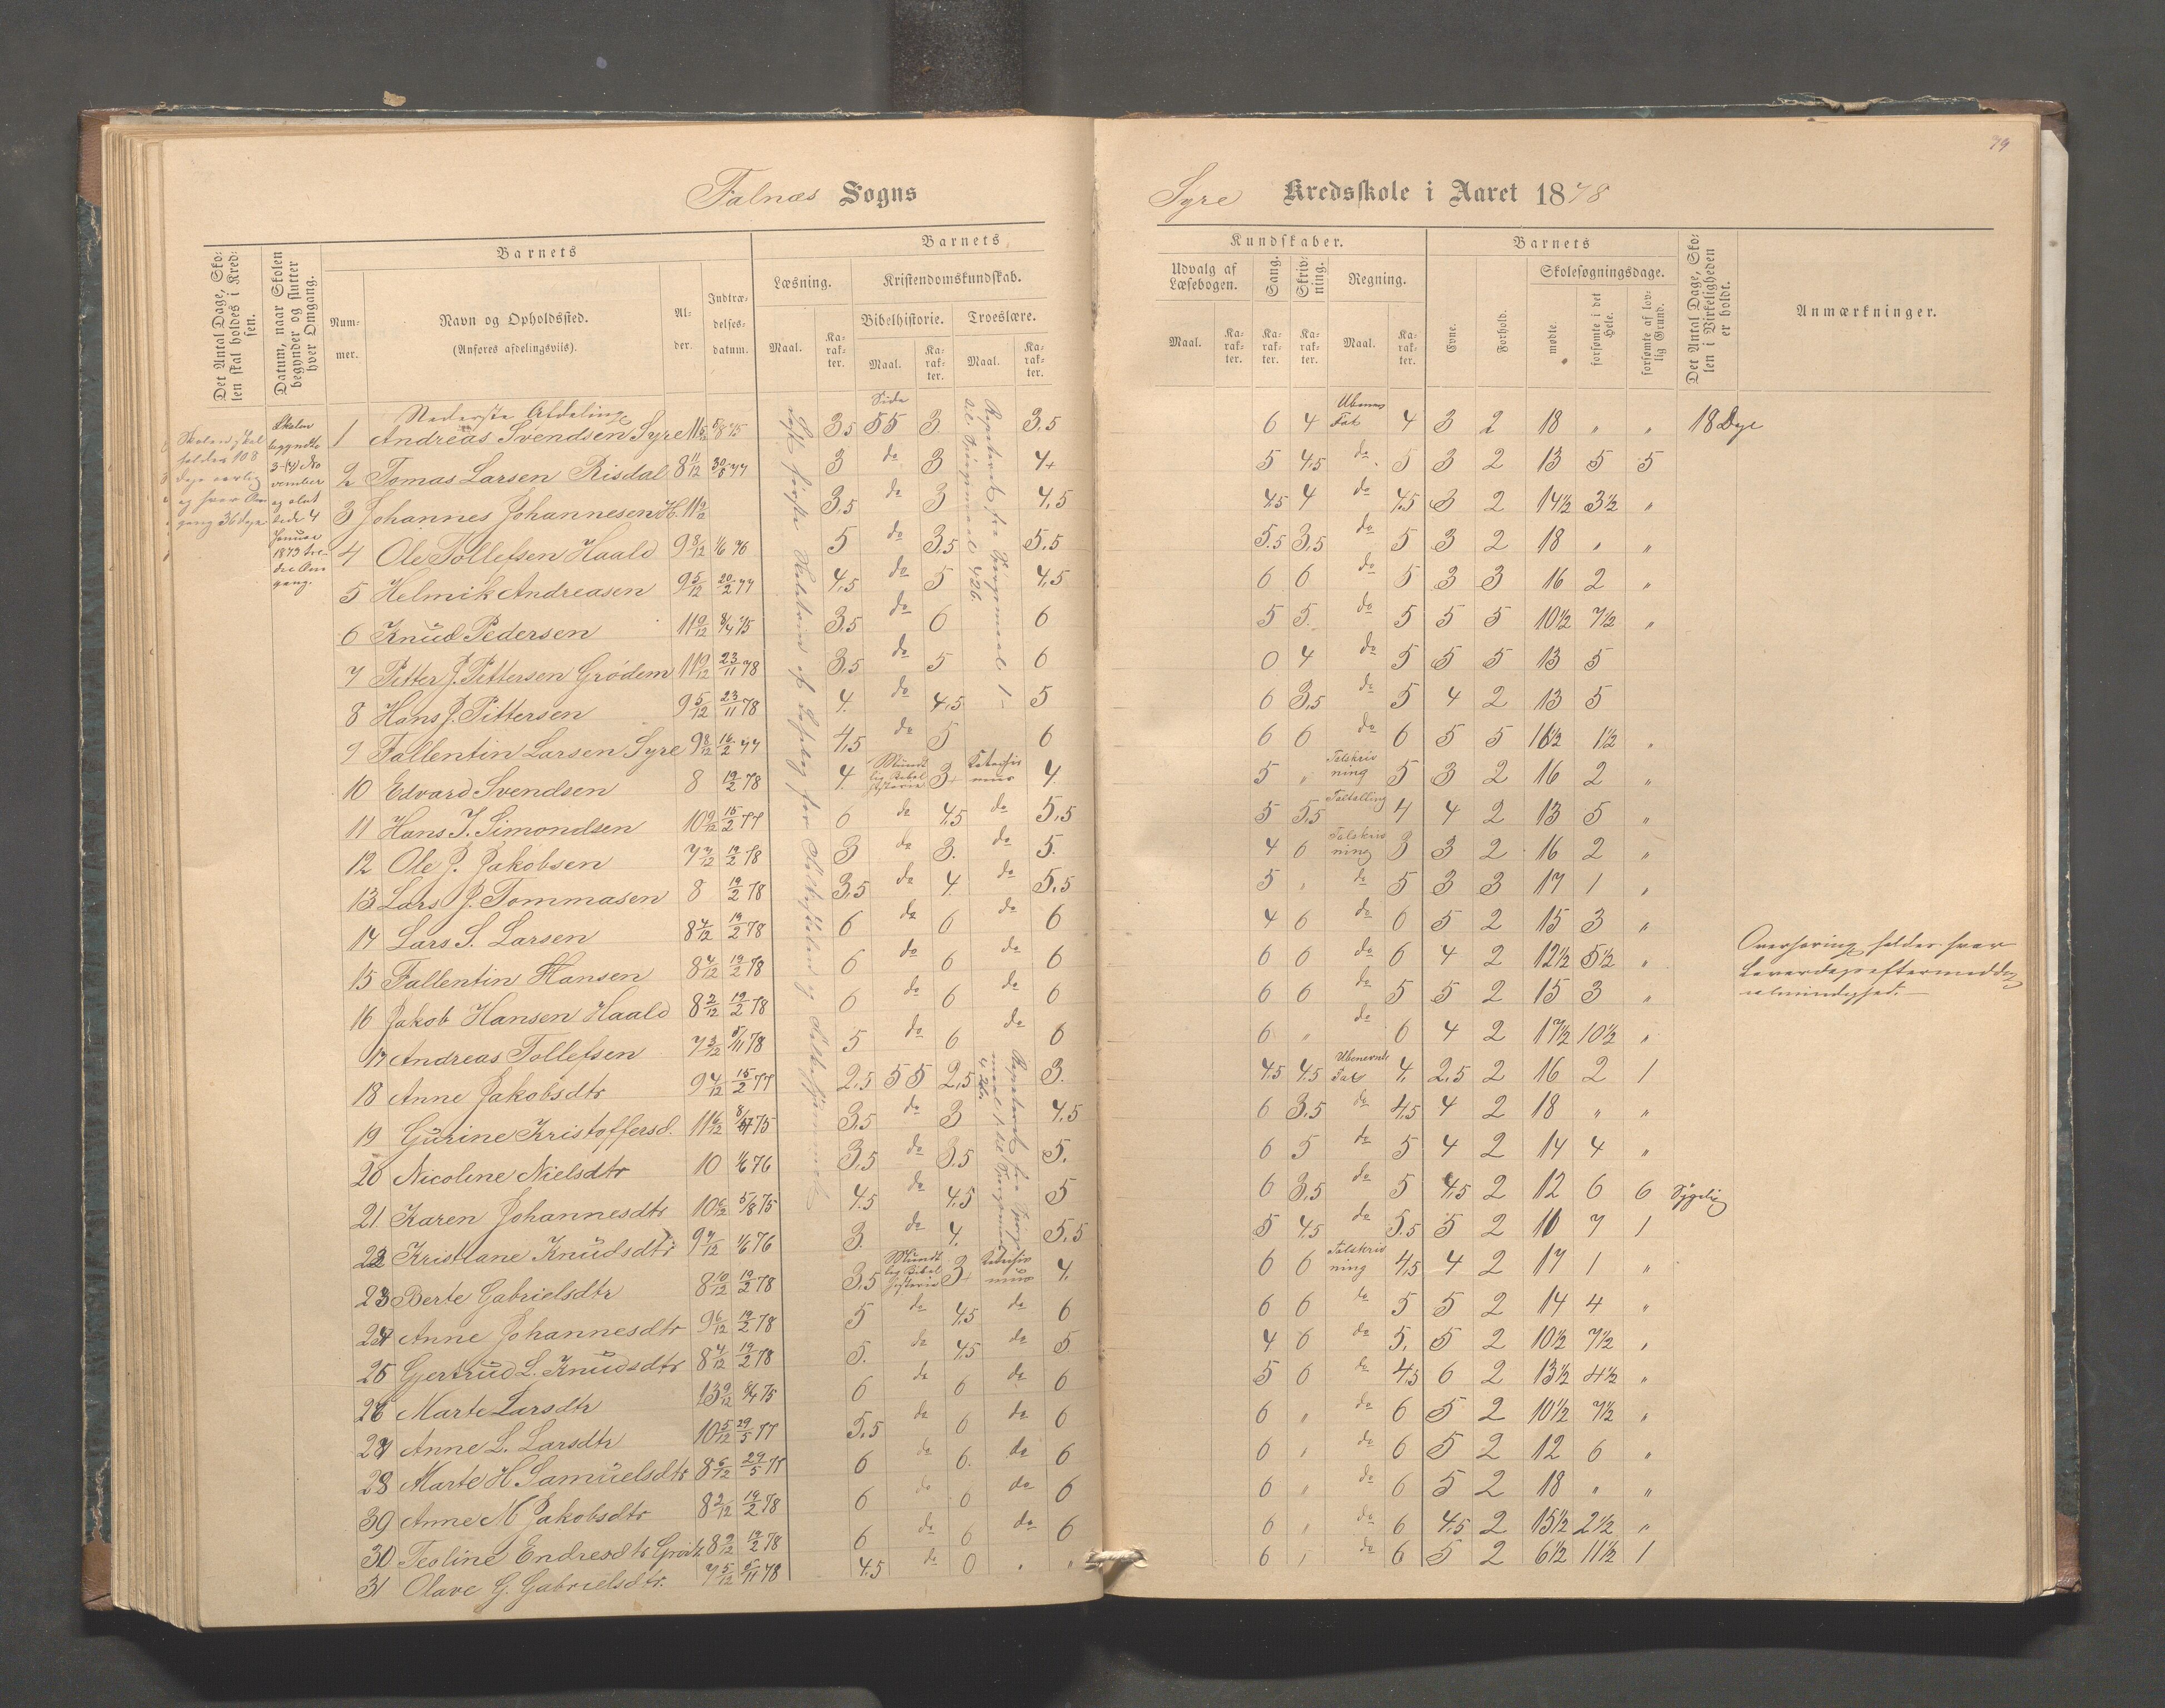 79
Falnæs Sogns
Syre Kredsskole i Aaret 1878
Det Antal Dage, Skolen skal holdes i Kredsen.
Datum, naar Skolen begynder og slutter hver Omgang.
Barnets
Nummer.
Navn og Opholdssted.
(Anføres afdelingsviis).
Alder.
Indtrædelsesdatum.
Barnets
Læsning.
Maal.
Karakter.
Kristendomskundskab.
Bibelhistorie.
Maal.
Karakter.
Troeslære.
Maal.
Karakter.
Kundskaber.
Udvalg af Læsebogen.
Maal.
Karakter.
Sang.
Karakter.
Skrivning.
Karakter.
Regning.
Maal.
Karakter.
Barnets
Evne.
Forhold.
Skolesøgningsdage.
mødte.
forsømte i det Hele.
forsømte af lovlig Grund.
Det Antal Dage, Skolen i Virkeligheden er holdt.
Anmærkninger.
Skolen skal
holdes 108
dage aarlig
og hver Om
gang 36 dage
Skolen
begyndte
vember
og slut
tede 4
Januar
1879 tre
die Om
gang.
Nederste Afdeling
1 Andreas Svendsen Syre 3,5 Side 55 3 3,5 6 4 4 3 2 18 " " 18 Dge
2 Tomas Larsen Risdal 8 11/12 30/5 77 3 do 3 4+ 5 4,5 do 5 3 2 13 5 5
3 Johannes Johannesen H. 3,5 do 3 4,5 4,5 4 do 4,5 3 2 14½ 3½ "
4 Ole Tollefsen Haald 9 8/12 1/6 76 5 do 3,5 5,5 5.5 3,5 do 5 3 2 18 " "
5 Helmik Andreasen 9 5/12 20/2 77 4,5 do 5 4,5 6 6 do 5 3 3 16 2 "
6 Knud Pedersen 11 9/12 8/4 75 3,5 do 6 6 5 5. do 5 5 5 10½ 7½ "
7 Pitter J. Pittersen Grødem 23/11 78 3,5 do 5 6 0 4 do 5 5 5 13 5
8 Hans J. Pittersen 9 5/12 23/11 78 4. do 4,5 5 6 3,5 do 5 4 2 13 5
9 Fallentin Larsen Syre 9 8/12 16/2 77 4,5 do 5 6 6 6 do 6 5 5 16½ 1½ "
10 Edvard Svendsen 8 19/2 78 4. Mundt lig Bibel historie 3+ Katechis mus 4. 5 " Talskriv ning 5 3 2 16 2 "
11 Hans T. Simondsen 10 9/12 15/2 77 6 do 4,5 do 5,5 5 5,5 Taltælling 4 4 2 13 5 "
12 Ole J. Jakobsen 7 7/12 19/2 78 3 do 3. do 5. 4 6 Talskriv ning 3 3 2 16 2 "
13 Lars J. Tommasen 8 19/2 78 3,5 do 4. do 5,5 5 " do 5 3 3 17 1 "
14 Lars S. Larsen 19/2 78 6 do 6 do 6 4 6 do 6 5 2 15 3 "
15 Fallentin Hansen 19/2 78 6 do 6 do 6 6 6 do 6 4 2 12½ 5½ "
16 Jakob Hansen Haald 8 2/12 19/2 78 6 do 6 do 6 6 6 do 5 5 2 15 3 "
17 Andreas Tollefsen 7 3/12 5/11 78 5 do 6 do 6 6 " do 6 4 2 17½ 10½ "
18 Anne Jakobsdtr 15/2 77 2,5 55 2,5 3. 4,5 4,5 Ubenevnte Tal 4. 2,5 2 16 2 1
19 Gurine Kristoffersd. 3,5 do 3 4,5 6 3,5 do 4,5 4 2 18 " "
20 Nicoline Nielsdtr 10 1/6 76 3,5 do 3.5 5. 6 5 do 5 4 2 14 4 "
21. Karen Johannesdtr 5/8 75 4.5 do 4,5 5 6 3,5 do 5 4,5 2 12 6 6 Sygelig
22 Kristiane Knudsdtr 9 7/12 1/6 76 3. do 4. 5,5 5 4,5 do 5.5 5 2 7 1
23 Berte Gabrielsdtr 8 10/12 19/2 78 3,5 Mundt lig Bibel historie 3+ Katechis mus 4. 6 6 Talskriv ning 4,5 4 2 17 1 "
24 Anne Johannesdtr 9 6/12 19/2 78 5 do 4,5 do 6 6 6 do 5 5 2 14 4 "
25 Gertrud L. Knudsdtr 19/2 78 5. do 4,5 do 5 4 6 do 5. 5 2 10½ 7½ "
26 Marte Larsdtr 8/4 75 6 do 6 do 6 5 6 do 4,5 6 2 13½ 4½ "
27 Anne L. Larsdtr 10 5/12 29/5 77 5,5 do 6 do 6 6 " do 6 5 2 10½ 7½ "
28 Marte H. Samuelsdtr 8 6/12 29/5 6 do 6. do 6 6 " do 6 5 2 12 6 "
39 Anne M Jakobsdtr 8 2/12 19/2 78 6 do 6 do 6 6 " do 6 5 2 18 " "
30 Teoline Endresdtr 19/2 78 6 do 6 do 6 6 " do 6 4,5 2 15½ 2½ "
31 Olave G. Gabrielsdtr. 7 5/12 5/11 78 4,5 do 0 " " 6 " do 6 5 2 6½ 11½ 1
Overhøring holdes hver
Løverdagseftermiddag